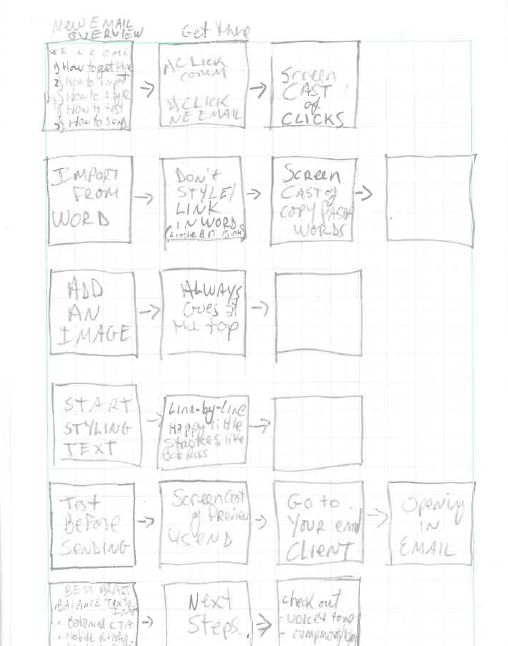 New EMAIL
OVERVIEW
Get there
WELCOME
1) How to get there
2) How to
3) How to style
4) How to test
5) How to send
1) CLICK
comm
2) CLICK
NEW EMAIL
Screen
CAST
of
CLICKS
IMPORT
FROM
WORD
DON'T
STYLE/
LINK
IN WORD
Screen
CAST of
COPY PASTE
WORDS
ADD
AN
IMAGE
ALWAYS
Goes @
the top
START
STYLING
TEXT
Line-by-line
Happy little
strokes, like
Bob Ross
Test
Before
SENDING
Screencast
of Preview
& SEND
Go to
Your email
CLIENT
Opening
IN
EMAIL
BEST
BALANCE
• Balanced CTA
• Mobile
Next
Steps...
check out
- voice & tone
-